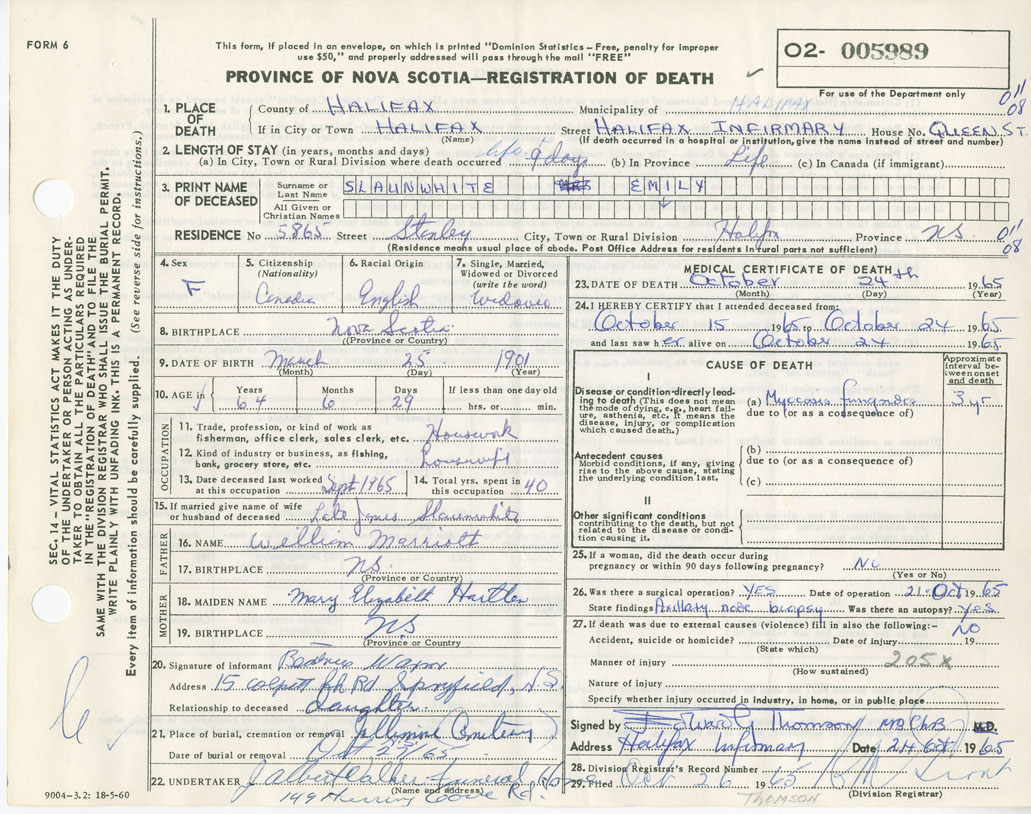 FORM 6
This form, if placed in an envelope, on which is printed "Dominion Statistics – Free, penalty for improper
use $50," and properly addressed will pass through the mail "FREE"
PROVINCE OF NOVA SCOTIA—REGISTRATION OF DEATH
02- 005989
For use of the Department only
011
08
1. PLACE OF DEATH County of HALIFAX Municipality of HALIFAX
If in City or Town HALIFAX Street HALIFAX INFIRMARY House No. QUEEN ST.
(Name) (If death occurred in a hospital or institution, give the name instead of street and number)
2. LENGTH OF STAY (in years, months and days)
(a) In City, Town or Rural Division where death occurred life + 9 days (b) In Province Life (c) In Canada (if immigrant)
3. PRINT NAME OF DECEASED Surname or Last Name SLAUNWHITE EMILY
All Given or Christian Names
RESIDENCE No 5865 Street Stanley City, Town or Rural Division Halifax Province NS
011
08
(Residence means usual place of abode. Post Office Address for residents in rural parts not sufficient)
4. Sex F
5. Citizenship (Nationality) Canadian
6. Racial Origin English
7. Single, Married, Widowed or Divorced (write the word) Widowed
8. BIRTHPLACE Nova Scotia
(Province or Country)
9. DATE OF BIRTH March 25 1901
(Month) (Day) (Year)
10. AGE in Years 64 Months 6 Days 29 If less than one day old hrs. or min.
OCCUPATION
11. Trade, profession, or kind of work as fisherman, office clerk, sales clerk, etc. Housework
12. Kind of industry or business, as fishing, bank, grocery store, etc.
13. Date deceased last worked at this occupation Sept 1965 14. Total yrs. spent in this occupation 40
15. If married give name of wife or husband of deceased Late James Slaunwhite
FATHER
16. NAME William Marriott
17. BIRTHPLACE NS
(Province or Country)
MOTHER
18. MAIDEN NAME Mary Elizabeth Hartlen
19. BIRTHPLACE NS
(Province or Country)
20. Signature of informant
Address 15 Rd Spryfield, N.S.
Relationship to deceased daughter
21. Place of burial, cremation or removal Cemetery
Date of burial or removal Oct 27/65
22. UNDERTAKER J Albert Walker Funeral Home
(Name and address)
149 Herring Cove Rd.
9004-3.2: 18-5-60
SEC. 114 – VITAL STATISTICS ACT MAKES IT THE DUTY
OF THE UNDERTAKER OR PERSON ACTING AS UNDER-
TAKER TO OBTAIN ALL THE PARTICULARS REQUIRED
IN THE "REGISTRATION OF DEATH" AND TO FILE THE
SAME WITH THE DIVISION REGISTRAR WHO SHALL ISSUE THE BURIAL PERMIT.
WRITE PLAINLY WITH UNFADING INK. THIS IS A PERMANENT RECORD.
Every item of information should be carefully supplied. (See reverse side for instructions.)
MEDICAL CERTIFICATE OF DEATH
23. DATE OF DEATH October 24th 1965
(Month) (Day) (Year)
24. I HEREBY CERTIFY that I attended deceased from:
October 15 1965 to October 24 1965
and last saw her alive on October 24 1965
CAUSE OF DEATH
Approximate interval between onset and death
I
Disease or condition directly leading to death (This does not mean the mode of dying, e.g., heart failure, asthenia, etc. It means the disease, injury, or complication which caused death.)
(a) Mycosis fungoides 3 yr
due to (or as a consequence of)
Antecedent causes
Morbid conditions, if any, giving rise to the above cause, stating the underlying condition last.
(b)
due to (or as a consequence of)
(c)
II
Other significant conditions
contributing to the death, but not related to the disease or condition causing it.
25. If a woman, did the death occur during pregnancy or within 90 days following pregnancy? No
(Yes or No)
26. Was there a surgical operation? YES Date of operation 21 Oct 1965
State findings Axillary node biopsy Was there an autopsy? yes
27. If death was due to external causes (violence) fill in also the following:- NO
Accident, suicide or homicide? Date of injury 19
(State which)
Manner of injury 205X
(How sustained)
Nature of injury
Specify whether injury occurred in industry, in home, or in public place
Signed by Thomson MB ChB M.D.
Address Halifax Infirmary Date 24 Oct 1965
28. Division Registrar's Record Number
29. Filed Oct 26 1965
(Division Registrar)
THOMSON